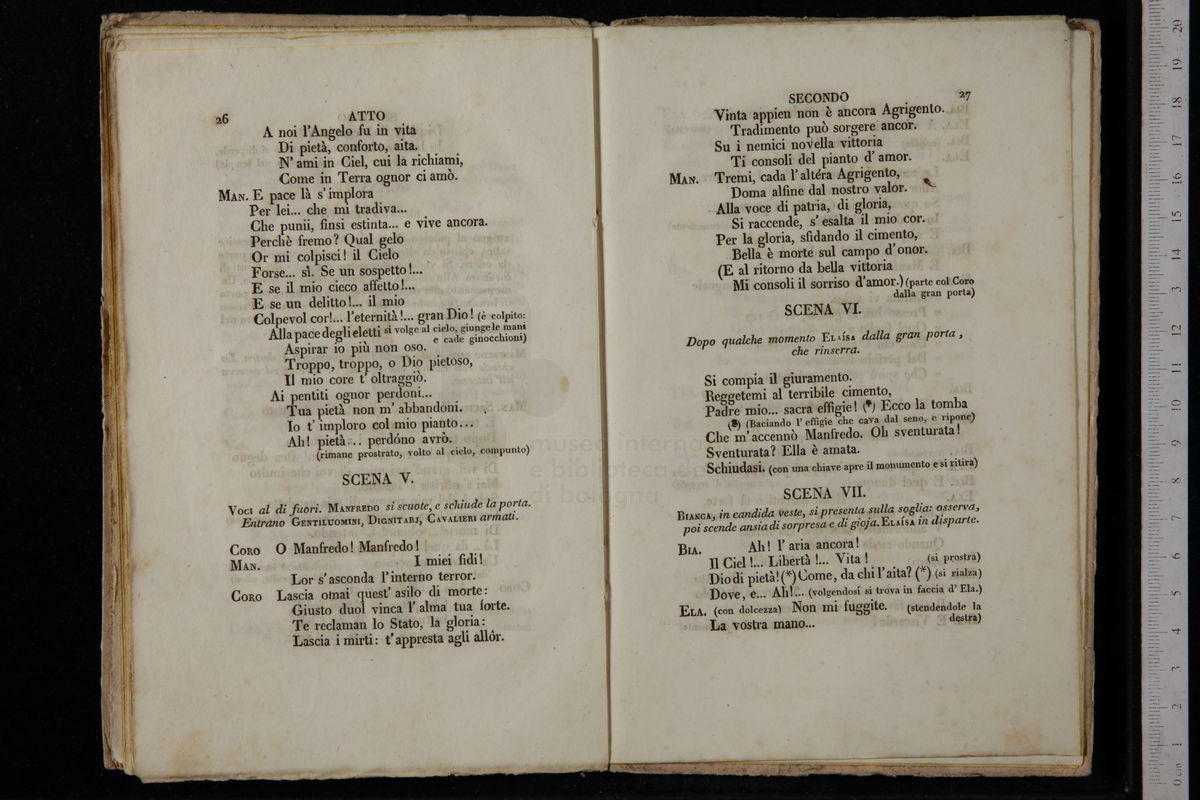 26 ATTO
A noi l'Angelo fu in vita
Di pietà, conforto, aita.
N' ami in Ciel, cui la richiami,
Come in Terra ognor ci amò.
MAN. E pace là s' implora
Per lei... che mi tradiva...
Che punii, finsi estinta... e vive ancora.
Perchè fremo? Qual gelo
Or mi colpisci! il Cielo
Forse... sì. Se un sospetto!...
E se il mio cieco affetto!...
E se un delitto!... il mio
Colpevol cor!... l'eternità!... gran Dio! (è colpito:
Alla pace degli eletti si volge al cielo, giunge le mani
e cade ginocchioni)
Aspirar io più non oso.
Troppo, troppo, o Dio pietoso,
Il mio core t' oltraggiò.
Ai pentiti ognor perdoni...
Tua pietà non m' abbandoni.
Io t' imploro col mio pianto...
Ah! pietà... perdóno avrò.
(rimane prostrato, volto al cielo, compunto)
SCENA V.
VOCI al di fuori. MANFREDO si scuote, e schiude la porta.
Entrano GENTILUOMINI, DIGNITARJ, CAVALIERI armati.
CORO O Manfredo! Manfredo!
MAN. I miei fidi!
Lor s' asconda l'interno terror.
CORO Lascia omai quest' asilo di morte:
Giusto duol vinca l' alma tua forte.
Te reclaman lo Stato, la gloria:
Lascia i mirti: t' appresta agli allôr.
SECONDO 27
Vinta appien non è ancora Agrigento.
Tradimento può sorgere ancor.
Su i nemici novella vittoria
Ti consoli del pianto d' amor.
MAN. Tremi, cada l' altéra Agrigento,
Doma alfine dal nostro valor.
Alla voce di patria, di gloria,
Si raccende, s' esalta il mio cor.
Per la gloria, sfidando il cimento,
Bella è morte sul campo d' onor.
(E al ritorno da bella vittoria
Mi consoli il sorriso d'amor.) (parte col Coro
dalla gran porta)
SCENA VI.
Dopo qualche momento ELAÍSA dalla gran porta,
che rinserra.
Si compia il giuramento.
Reggetemi al terribile cimento,
Padre mio... sacra effigie! (*) Ecco la tomba
(*) (Baciando l' effigie che cava dal seno, e ripone)
Che m'accennò Manfredo. Oh sventurata!
Sventurata? Ella è amata.
Schiudasi. (con una chiave apre il monumento e si ritira)
SCENA VII.
BIANCA, in candida veste, si presenta sulla soglia: osserva,
poi scende ansia di sorpresa e di gioja. ELAÍSA in disparte.
BIA. Ah! l' aria ancora!
Il Ciel!... Libertà!... Vita! (si prostra)
Dio di pietà! (*) Come, da chi l'aita? (*) (si rialza)
Dove, e... Ah!... (volgendosi si trova in faccia d' Ela.)
ELA. (con dolcezza) Non mi fuggite. (stendendole la
destra)
La vostra mano...
museo interna
e biblioteca de
di bologna